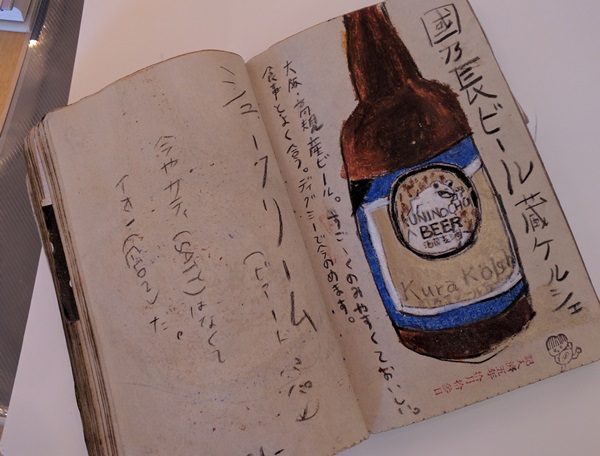 國乃長ビール 蔵ケルシュ
KUNINOCHO
BEER
Kura Kölsch
大阪・高槻産ビール。すご〜くのみやすくておいしい。
食事とよく合う。ディグミーで今のめます。
シュークリーム
今やサティ(SATY)はなくて
イオン(ÆON)だ。